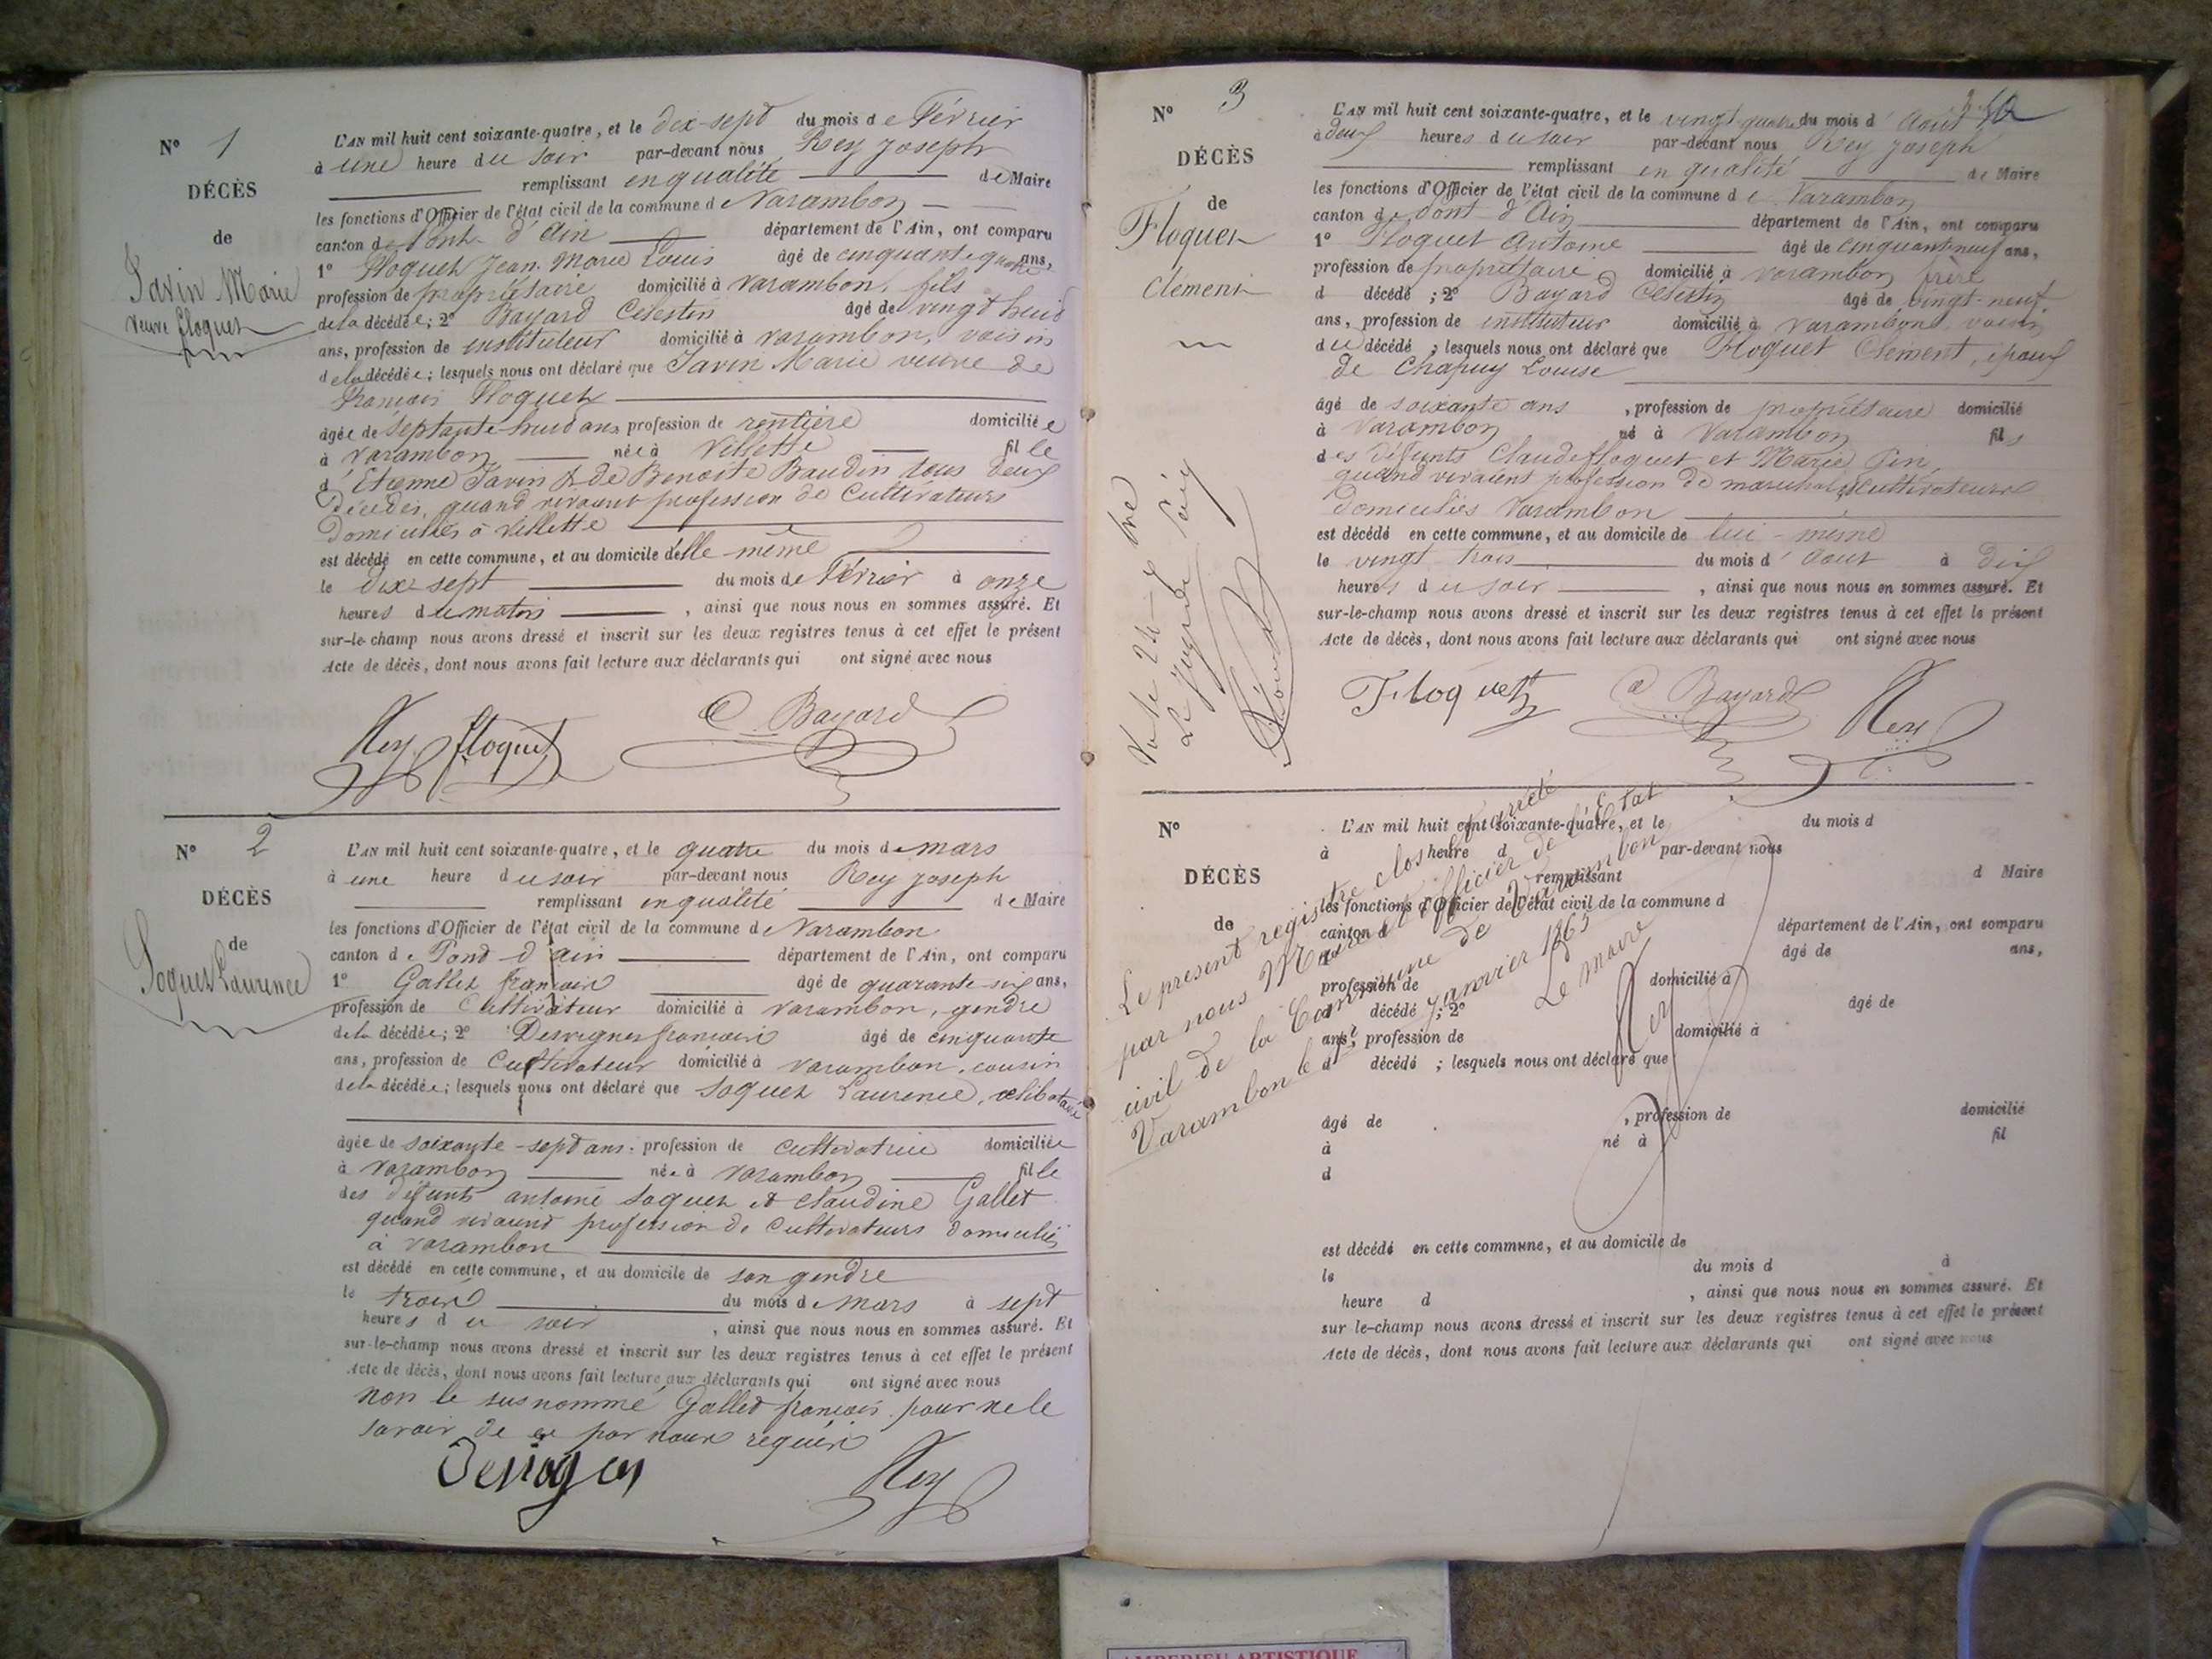 N° 1
DÉCÈS
de
Savin Marie
veuve floquet
L'AN mil huit cent soixante-quatre, et le dix-sept du mois de Février
à une heure du soir par-devant nous Rey Joseph
remplissant en qualité de Maire
les fonctions d'Officier de l'état civil de la commune de Varambon
canton de Pont-d'Ain département de l'Ain, ont comparu
1° Floquet Jean Marie Louis âgé de cinquante quatre ans,
profession de propriétaire domicilié à Varambon, fils
de la décédée; 2° Bayard Célestin âgé de vingt huit
ans, profession de instituteur domicilié à varambon, voisin
de la décédée; lesquels nous ont déclaré que Savin Marie veuve de
François Floquet
âgée de septante-huit ans, profession de rentière domiciliée
à varambon née à Villette fille
d'Etienne Savin & de Benoite Baudin tous deux
décédés, quand vivaient profession de Cultivateurs
domiciliés à Villette
est décédé en cette commune, et au domicile d'elle-même
le dix-sept du mois de Février à onze
heures du matin, ainsi que nous nous en sommes assuré. Et
sur-le-champ nous avons dressé et inscrit sur les deux registres tenus à cet effet le présent
Acte de décès, dont nous avons fait lecture aux déclarants qui ont signé avec nous
Rey floquet C Bayard
N° 2
DÉCÈS
de
Soquet Laurence
L'AN mil huit cent soixante-quatre, et le quatre du mois de mars
à une heure du soir par-devant nous Rey Joseph
remplissant en qualité de Maire
les fonctions d'Officier de l'état civil de la commune de Varambon
canton de Pont d'ain département de l'Ain, ont comparu
1° Gallet françois âgé de quarante-six ans,
profession de Cultivateur domicilié à varambon, gendre
de la décédée; 2° Desvignes françois âgé de cinquante
ans, profession de Cultivateur domicilié à varambon, cousin
de la décédée; lesquels nous ont déclaré que Soquet Laurence, célibataire
âgée de soixante-sept ans, profession de cultivatrice domiciliée
à varambon née à varambon fille
des défunts antoine soquet et claudine Gallet
quand vivaient profession de cultivateurs domiciliés
à varambon
est décédé en cette commune, et au domicile de son gendre
le trois du mois de mars à sept
heures du soir, ainsi que nous nous en sommes assuré. Et
sur-le-champ nous avons dressé et inscrit sur les deux registres tenus à cet effet le présent
Acte de décès, dont nous avons fait lecture aux déclarants qui ont signé avec nous
non le susnommé Gallet françois pour ne le
savoir de ce par nous requis
Rey
N° 3
DÉCÈS
de
Floquet
Clément
L'AN mil huit cent soixante-quatre, et le vingt-quatre du mois d'Août
à deux heures du soir par-devant nous Rey Joseph
remplissant en qualité de Maire
les fonctions d'Officier de l'état civil de la commune de Varambon
canton de Pont-d'Ain département de l'Ain, ont comparu
1° Floquet Antoine âgé de cinquante neuf ans,
profession de propriétaire domicilié à varambon frère
d décédé; 2° Bayard Célestin âgé de vingt-neuf
ans, profession de instituteur domicilié à varambon, voisin
du décédé; lesquels nous ont déclaré que Floquet Clément, époux
de Chapuy Louise
âgé de soixante ans, profession de propriétaire domicilié
à varambon né à Varambon fils
des défunts Claude floquet et Marie
quand vivaient profession de cultivateurs
domiciliés Varambon
est décédé en cette commune, et au domicile de lui-même
le vingt trois du mois d'aout à dix
heures du soir, ainsi que nous nous en sommes assuré. Et
sur-le-champ nous avons dressé et inscrit sur les deux registres tenus à cet effet le présent
Acte de décès, dont nous avons fait lecture aux déclarants qui ont signé avec nous
Floquet C Bayard Rey
N°
DÉCÈS
de
L'AN mil huit cent soixante-quatre, et le du mois d
à heure d par-devant nous
remplissant d Maire
les fonctions d'Officier de l'état civil de la commune d
canton d département de l'Ain, ont comparu
1° âgé de ans,
profession de domicilié à
d décédé; 2° âgé de
ans, profession de domicilié à
d décédé; lesquels nous ont déclaré que
âgé de , profession de domicilié
à né à fil
d
est décédé en cette commune, et au domicile de
le du mois d à
heure d , ainsi que nous nous en sommes assuré. Et
sur le-champ nous avons dressé et inscrit sur les deux registres tenus à cet effet le présent
Acte de décès, dont nous avons fait lecture aux déclarants qui ont signé avec nous
Le présent registre clos et arrêté
par nous Maire et officier de l'état
civil de la Commune de Varambon
Varambon le 1er Janvier 1865
Le maire
Rey
AMBERIEU ARTISTIQUE